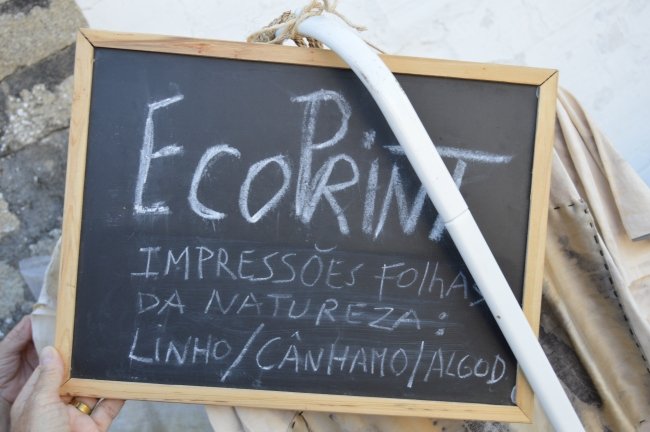 ECOPRINT
IMPRESSÕES FOLHAS
DA NATUREZA:
LINHO/CÂNHAMO/ALGOD